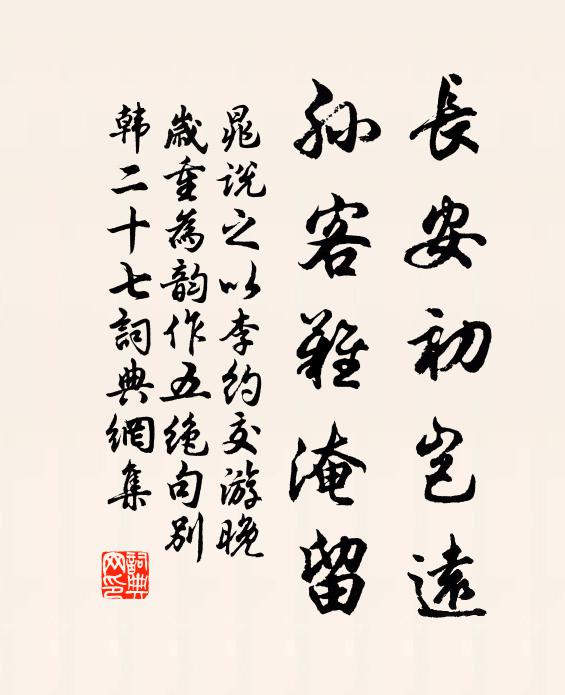 長安初豈遠
孙客難淹留
晁説之以李約交游晚
歲重為韵作五絕句別
韩二十七詞典網集
詞典网印